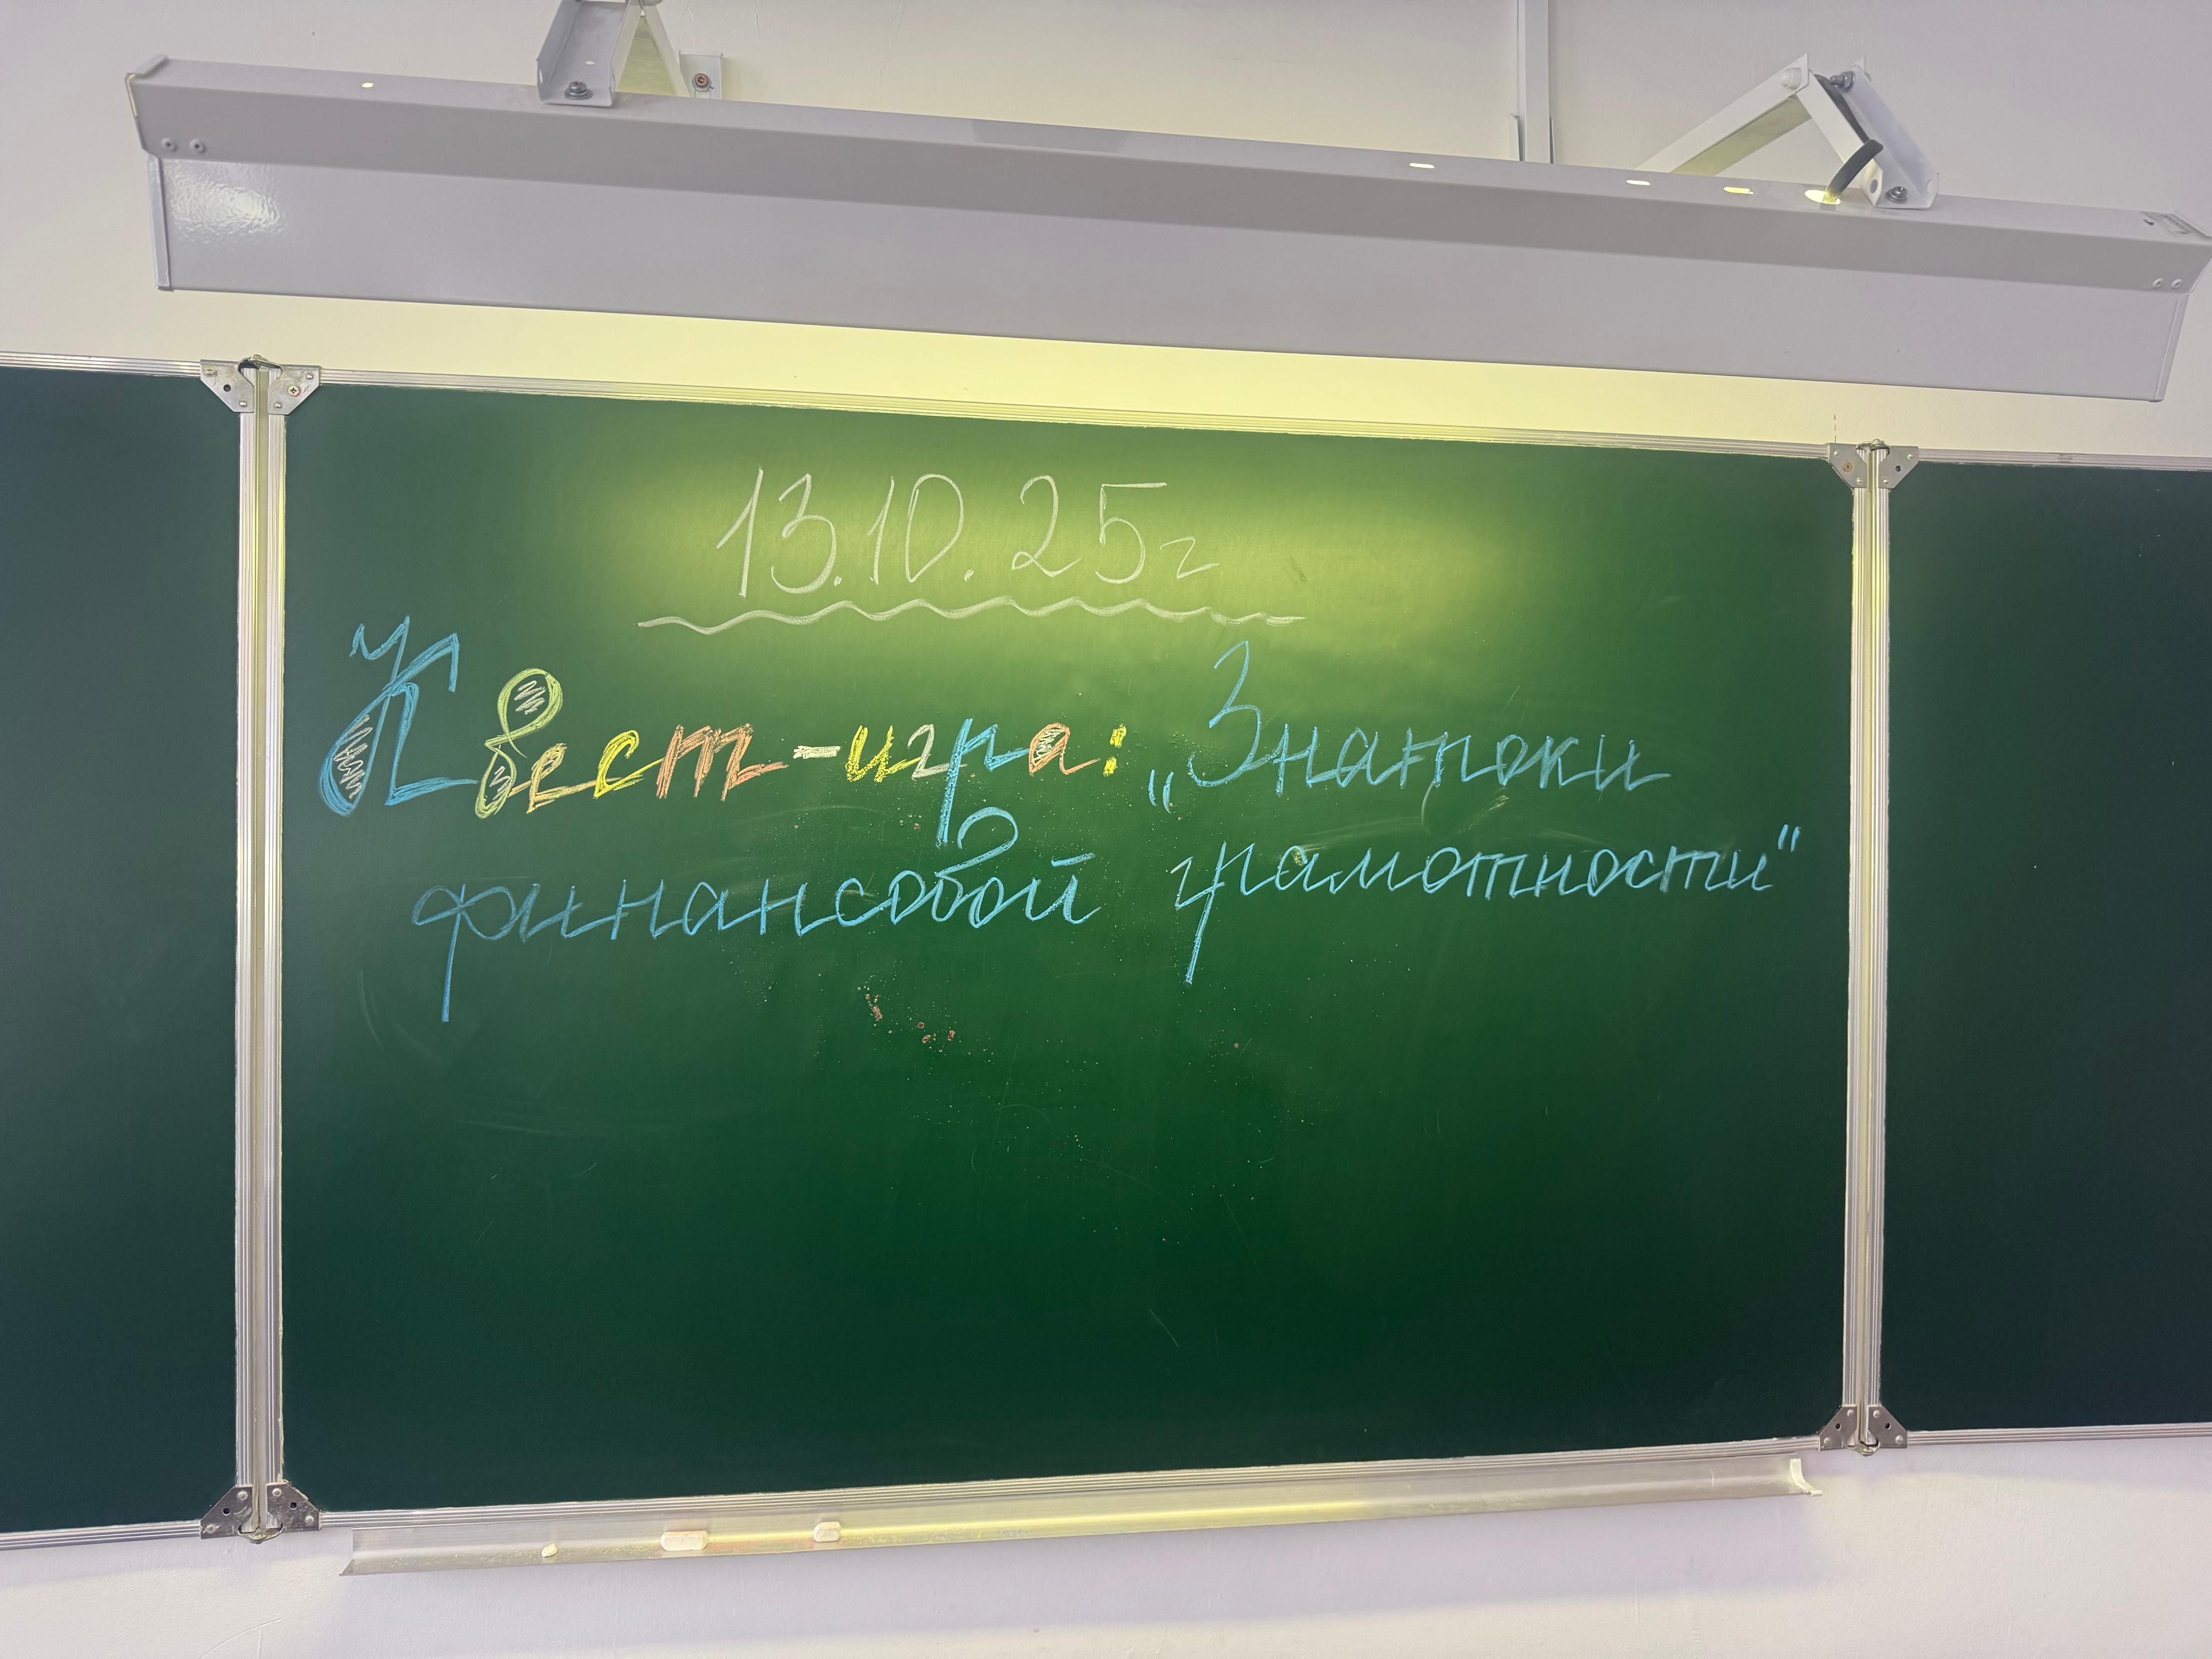 13.10.25г
Квест-игра: „Знатоки
финансовой грамотности"